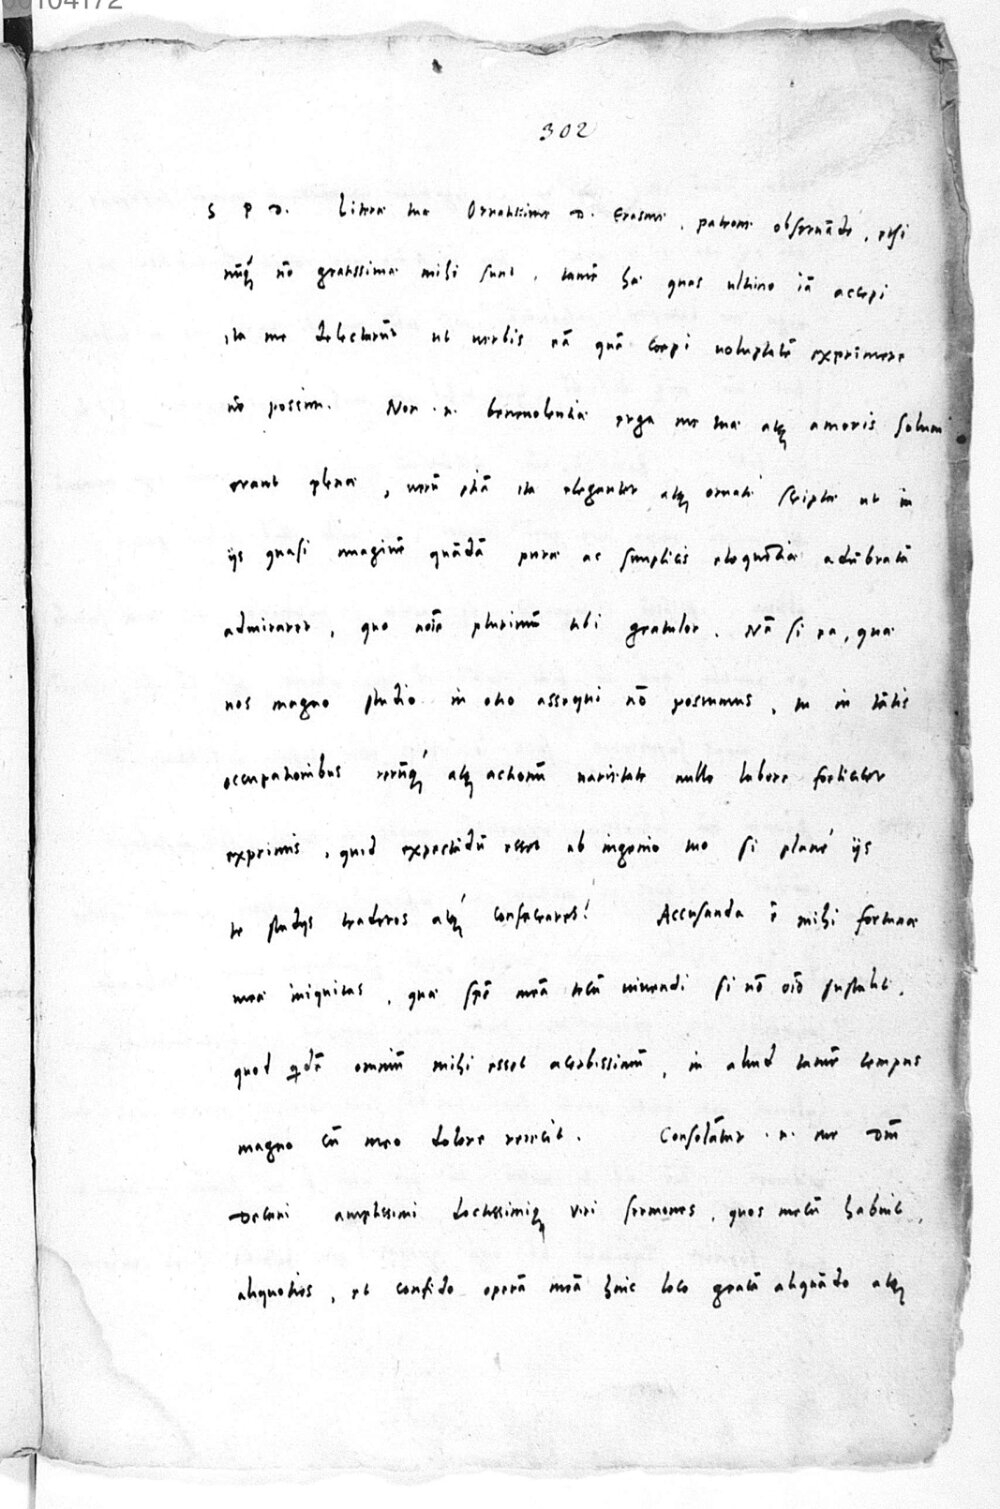 00104172
302
S P D. Literae tuae Ornatissime D. Erasme, patrone obseruāde, etsi
nūq́ nō gratissimae mihi sunt, tamē hae quas ultimo iā accepi
ita me delectarūt ut uerbis eā quā coepi uoluptatē exprimere
nō possim. Non .n. beneuolentiae erga me tuae atq amoris solum
erant plenae, uerū etiā ita eleganter atq ornatè scriptae ut in
ijs quasi imaginē quādā purae ac simplicis eloquētiae adūbratā
admirarer, quo noīe plurimū tibi gratulor. Nā si ea, quae
nos magno studio in otio assequi nō possumus, tu in tātis
occupationibus rerūq́ atq actionū uarietate nullo labore foeliciter
exprimis, quid expectādū esset ab ingenio tuo si planè ijs
te studijs traderes atq́ consecrares! Accusanda ē mihi fortunae
meae iniquitas, quae spē meā tecū uiuendi si nō oīo sustulit,
quod qdē omniū mihi esset acerbissimū, in aliud tamē tempus
magno cū meo dolore reiecit. Consolātur .n. me Dn̄i
Decani amplissimi doctissimiq uiri sermones, quos mecū habuit,
aliquoties, et confido operā meā huic loco gratā aliquādo atq